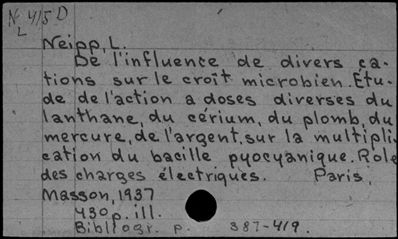 N 415 D
L
Neipp, L.
De l'influence de divers ca-
tions sur le croît microbien. Etu-
de de l'action a doses diverses du
lanthane, du cérium, du plomb, du
mercure, de l'argent, sur la multipli-
cation du bacille pyocyanique. Role
des charges électriques. Paris,
Masson, 1937
430 p. ill.
Bibliogr. p. 387-419.